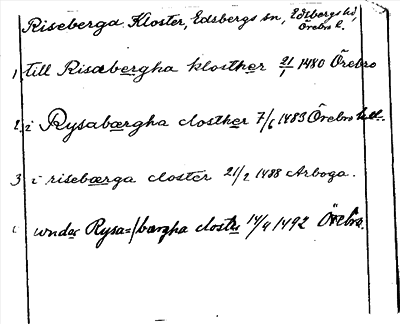 Riseberga Kloster, Edsbergs sn, Edsbergs hd,
Örebro l.
1 till Risæbergha klosther 21/1 1480 Örebro
2. i Rysabærgha closther 7/6 1483 Örebro
3 i risebærga closter 21/2 1488 Arboga.
wnder Rysa=/bærgha closter 14/9 1492 Örebro.